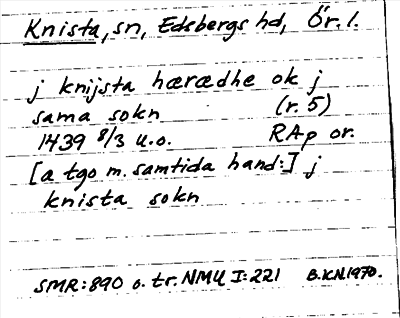 Knista, sn, Edsbergs hd, Ör. l.
j knijsta hærædhe ok j
sama sokn (r. 5)
1439 8/3 u.o. RAp or.
[a tgo m. samtida hand:] j
knista sokn
SMR: 890 o. tr. NMU I: 221 B.KN.1970.